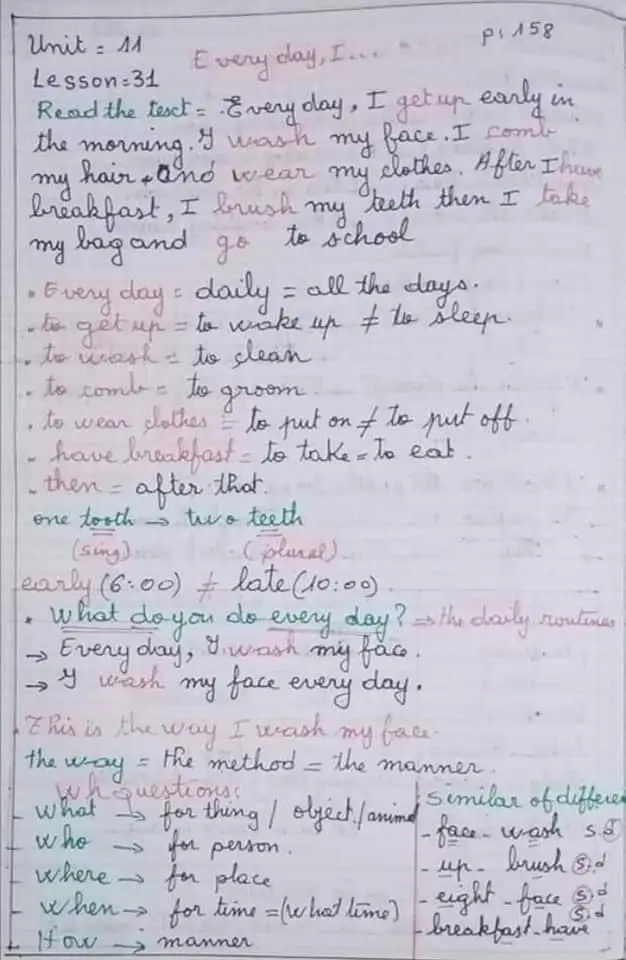 Unit = 11
p: 158
Every day, I...
Lesson=31
Read the text = Every day, I get up early in
the morning. I wash my face. I comb
my hair and wear my clothes. After I have
breakfast, I brush my teeth then I take
my bag and go to school
. Every day = daily = all the days.
. to get up = to wake up ≠ to sleep.
. to wash = to clean.
. to comb = to groom.
. to wear clothes = to put on ≠ to put off.
- have breakfast = to take = To eat.
- then = after that.
one tooth → two teeth
(sing) (plural)
early (6:00) ≠ late (10:00)
. What do you do every day? ⇒ the daily routines
→ Every day, I wash my face.
→ I wash my face every day.
. This is the way I wash my face.
the way = the method = the manner.
Wh questions:
- what → for thing / object / animal
- who → for person.
- where → for place
- when → for time = (what time)
- How → manner
Similar of differen
- face - wash s d
- up - brush s.d
- eight - face s.d
- breakfast - have s.d